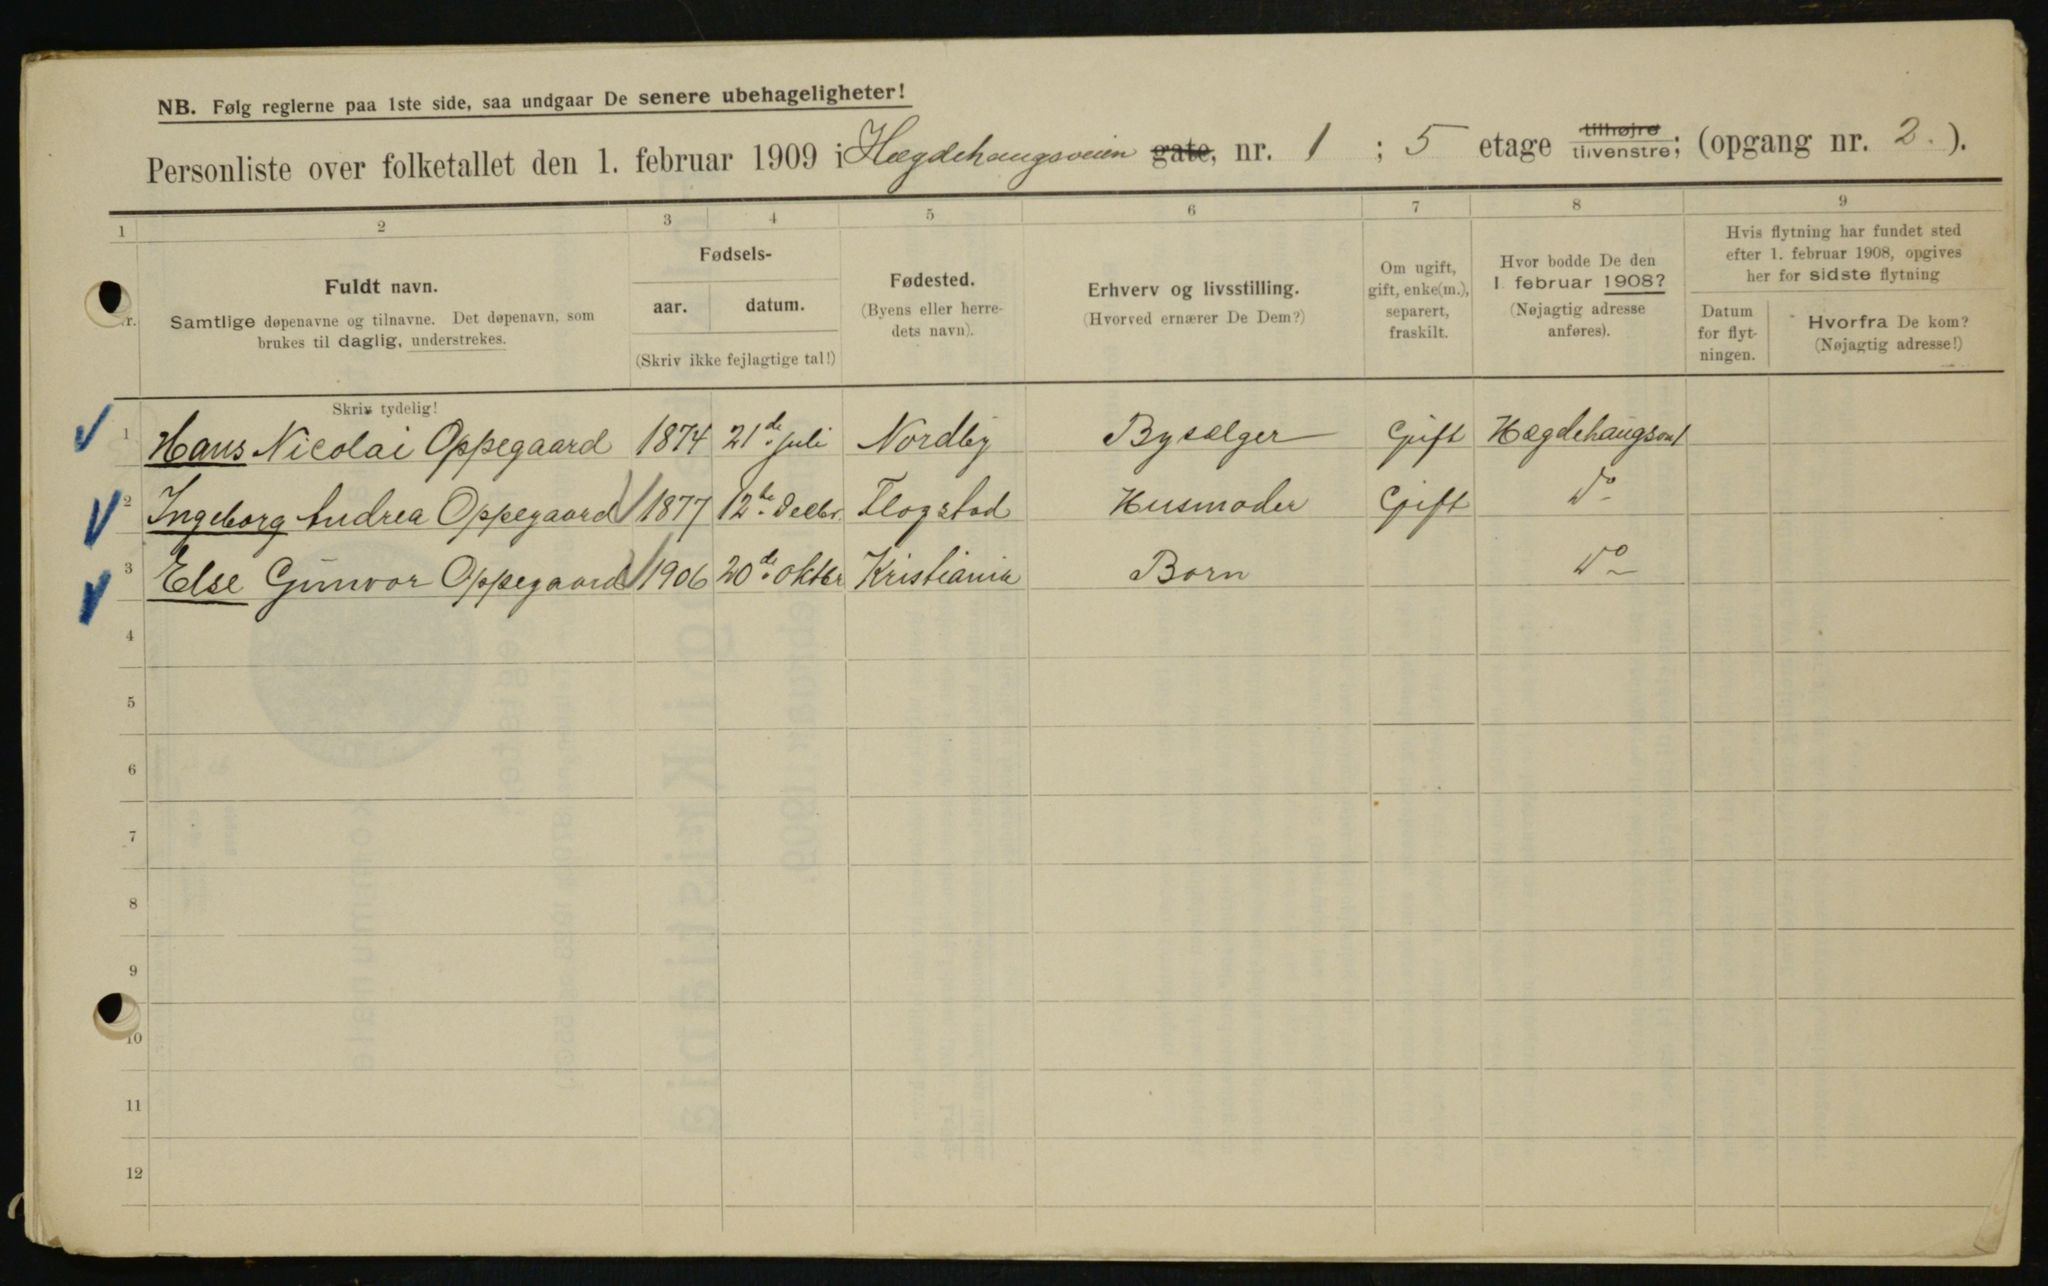 NB. Følg reglerne paa 1ste side, saa undgaar De senere ubehageligheter!
Personliste over folketallet den 1. februar 1909 i Hægdehaugsveien gate, nr. 1 ; 5 etage tilhøjre tilvenstre; (opgang nr. 2. ).
1 2 3 4 5 6 7 8 9
Nr.
Fuldt navn.
Samtlige døpenavne og tilnavne. Det døpenavn, som
brukes til daglig, understrekes.
Fødsels-
aar. datum.
(Skriv ikke fejlagtige tal!)
Fødested.
(Byens eller herre-
dets navn).
Erhverv og livsstilling.
(Hvorved ernærer De Dem?)
Om ugift,
gift, enke(m.),
separert,
fraskilt.
Hvor bodde De den
1 februar 1908?
(Nøjagtig adresse
anføres).
Hvis flytning har fundet sted
efter 1. februar 1908, opgives
her for sidste flytning
Datum
for flyt-
ningen.
Hvorfra De kom?
(Nøjagtig adresse!)
Skriv tydelig!
1 Hans Nicolai Oppegaard 1874 21de juli Nordby Bysælger Gift Hægdehaugsv 1
2 Ingeborg Andrea Oppegaard 1877 12te Decbr. Flogstad Husmoder Gift Do
3 Else Gunvor Oppegaard 1906 20de oktbr Kristiania Barn Do
4
5
6
7
8
9
10
11
12